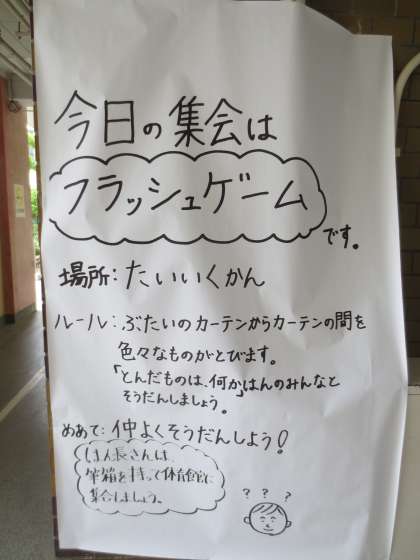 今日の集会は
フラッシュゲーム
です。
場所:たいいくかん
ルール:ぶたいのカーテンからカーテンの間を
色々なものがとびます。
「とんだものは、何か」はんのみんなと
そうだんしましょう。
めあて:仲よくそうだんしよう!
はん長さんは、
筆箱を持って体育館に
集合しましょう。
? ? ?